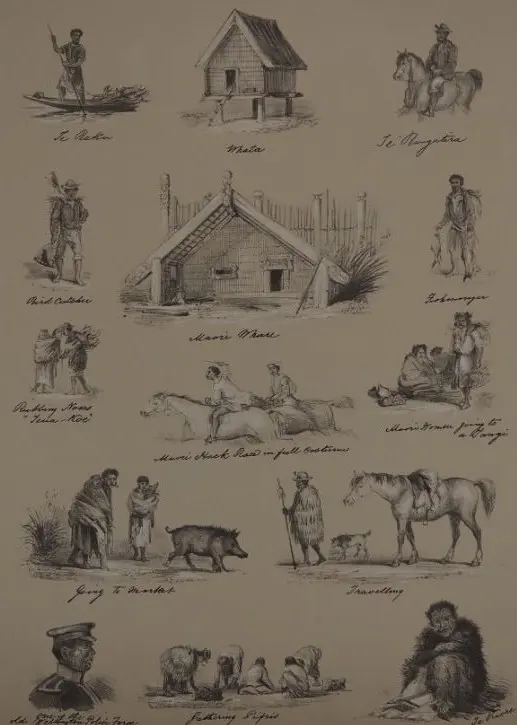 Whata
Te Rangatira
Bird Catcher
Maori Whare
Rubbing Noses
"Tena-Koe"
Maori Women going to
a Tangi
Maori Hack Race in full Costume
Going to Market
Travelling
Gathering Pipis